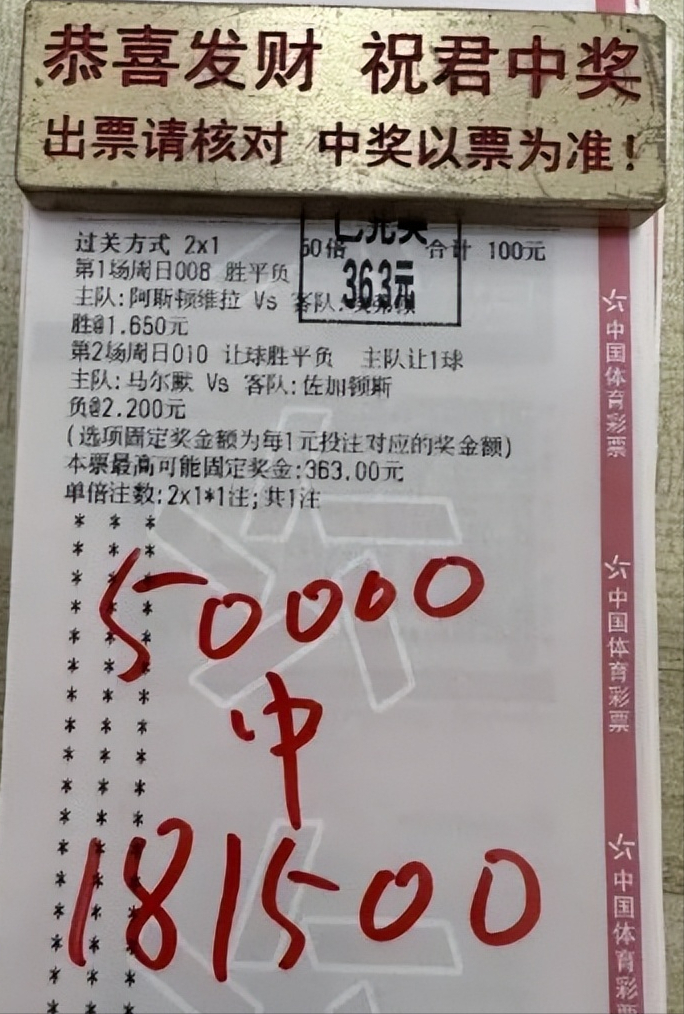 恭喜发财 祝君中奖
出票请核对 中奖以票为准!
已兑奖
363元
过关方式 2x1 50倍 合计 100元
第1场周日008 胜平负
主队:阿斯顿维拉 Vs 客队:
胜@1.650元
第2场周日010 让球胜平负 主队让1球
主队:马尔默 Vs 客队:佐加顿斯
负@2.200元
(选项固定奖金额为每1元投注对应的奖金额)
本票最高可能固定奖金:363.00元
单倍注数:2x1*1注;共1注
50000
中
181500
中国体育彩票
中国体育彩票
中国体育彩票